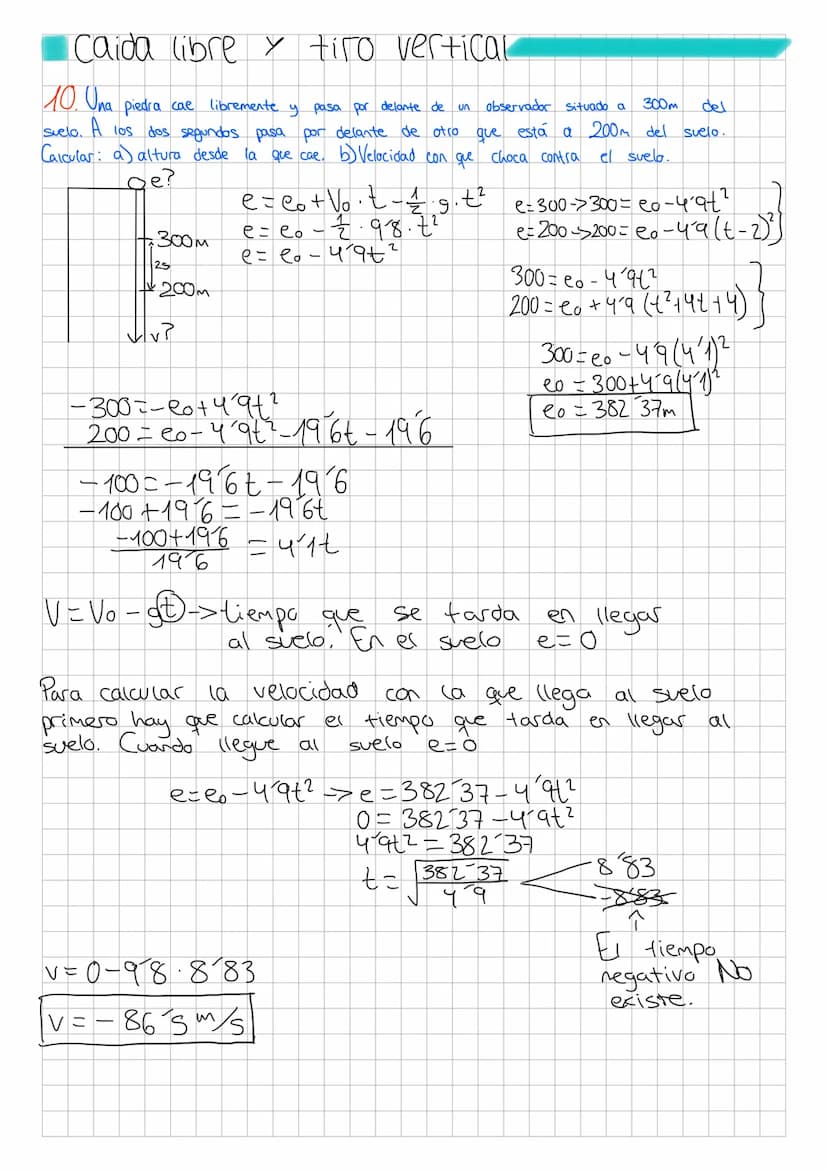 Caida libre y tiro vertical
10. Una piedra cae libremente y pasa por delante de un observador situado a 300m del
suelo. A los dos segundos pasa por delante de otro que está a 200m del suelo.
Calcular: a) altura desde la que cae. b) Velocidad con que choca contra el suelo.
e?
300m
2s
200m
v?
e = e₀ + V₀ · t - 1/2 · g · t²
e = e₀ - 1/2 · 9'8 · t²
e = e₀ - 4'9t²
e=300 -> 300 = e₀ - 4'9t²
e=200 -> 200 = e₀ - 4'9 (t-2)²
300 = e₀ - 4'9t²
200 = e₀ + 4'9 (t² + 4t + 4)
300 = e₀ - 4'9 (4'1)²
e₀ = 300 + 4'9 (4'1)²
e₀ = 382'37m
-300 = -e₀ + 4'9t²
200 = e₀ - 4'9t² - 19'6t - 19'6
-100 = -19'6t - 19'6
-100 + 19'6 = -19'6t
-100+19'6 / 19'6 = 4'1t
V = V₀ - gt -> tiempo que se tarda en llegar
al suelo. En el suelo e = 0
Para calcular la velocidad con la que llega al suelo
primero hay que calcular el tiempo que tarda en llegar al
suelo. Cuando llegue al suelo e = 0
e = e₀ - 4'9t² -> e = 382'37 - 4'9t²
0 = 382'37 - 4'9t²
4'9t² = 382'37
t = √382'37 / 4'9
8'83
-8'83
El tiempo
negativo No
existe.
v = 0 - 9'8 · 8'83
v = - 86'5 m/s